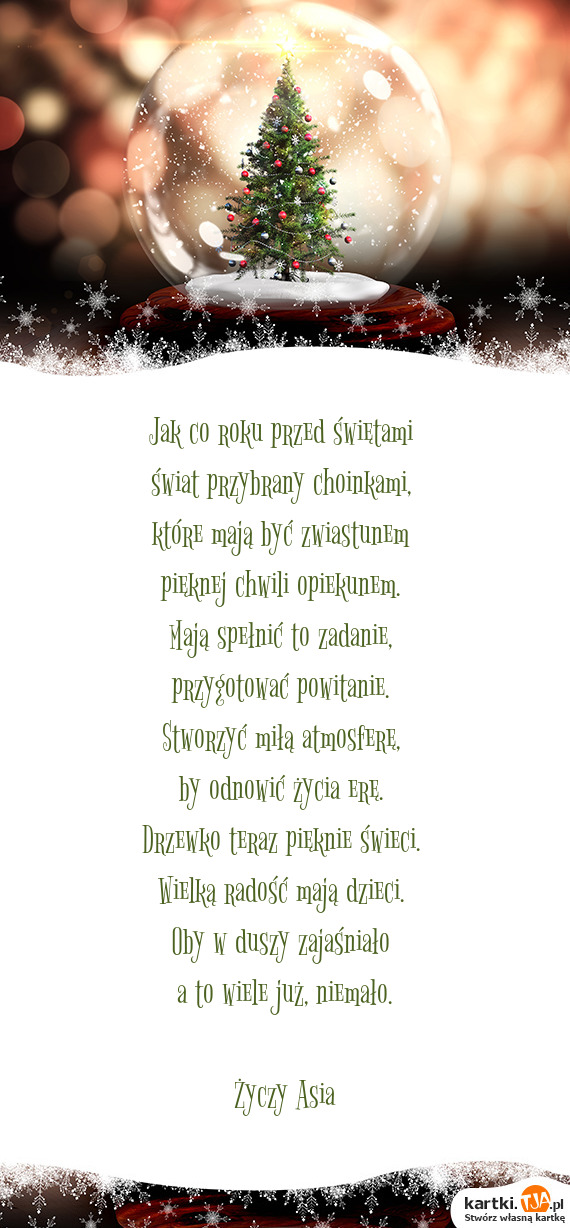 Jak co roku przed świętami
świat przybrany choinkami,
które mają być zwiastunem
pięknej chwili opiekunem.
Mają spełnić to zadanie,
przygotować powitanie.
Stworzyć miłą atmosferę,
by odnowić życia erę.
Drzewko teraz pięknie świeci.
Wielką radość mają dzieci.
Oby w duszy zajaśniało
a to wiele już, niemało.
Życzy Asia
kartki.TJA.pl
Stwórz własną kartkę